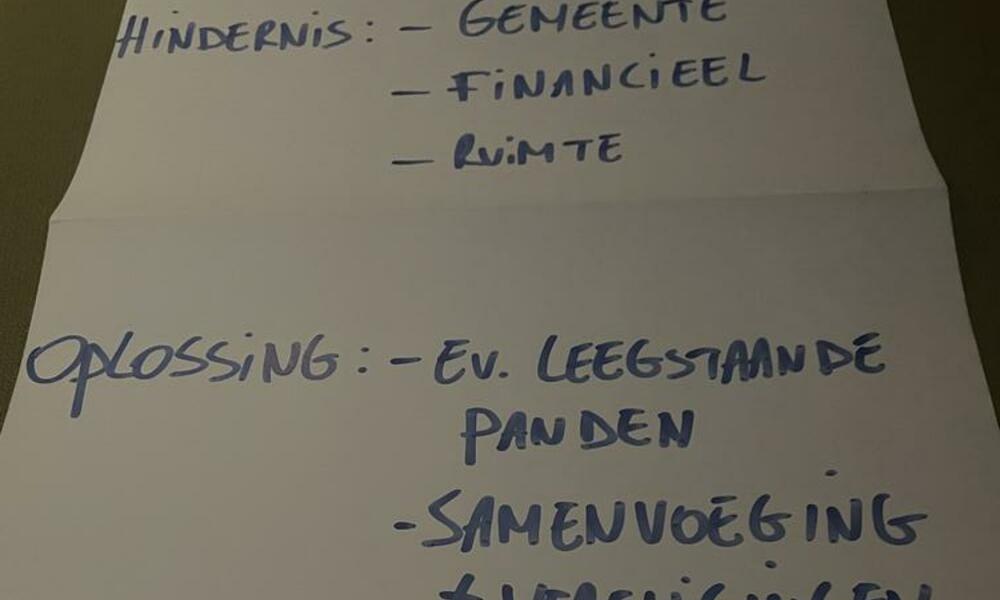 HiNDERNiS: - GEMEENTE
- FiNANCiEEL
- RuiMTE
OpLOSSiNG: - EV. LEEGSTAANDE
PANDEN
- SAMENVOEGING